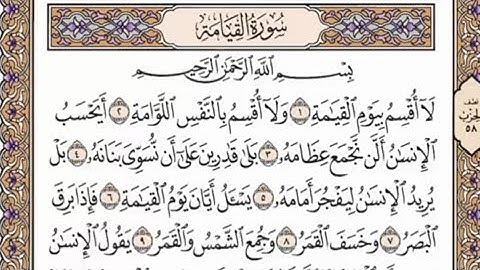 سُورَةُ القِيَامَةِ
بِسْمِ اللَّهِ الرَّحْمَٰنِ الرَّحِيمِ
لَآ أُقْسِمُ بِيَوْمِ الْقِيَٰمَةِ ١ وَلَآ أُقْسِمُ بِالنَّفْسِ اللَّوَّامَةِ ٢ أَيَحْسَبُ
الْإِنسَٰنُ أَلَّن نَّجْمَعَ عِظَامَهُۥ ٣ بَلَىٰ قَٰدِرِينَ عَلَىٰٓ أَن نُّسَوِّىَ بَنَانَهُۥ ٤ بَلْ
يُرِيدُ الْإِنسَٰنُ لِيَفْجُرَ أَمَامَهُۥ ٥ يَسْـَٔلُ أَيَّانَ يَوْمُ الْقِيَٰمَةِ ٦ فَإِذَا بَرِقَ
الْبَصَرُ ٧ وَخَسَفَ الْقَمَرُ ٨ وَجُمِعَ الشَّمْسُ وَالْقَمَرُ ٩ يَقُولُ الْإِنسَٰنُ
نصف
الحزب
٥٨